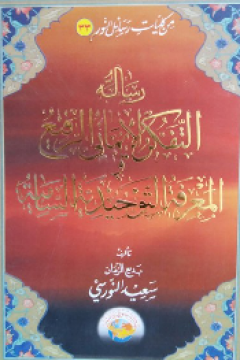 من كليات رسائل النور ٣٣
رسالة
التفكر الإيماني الرفيع
و
المعرفة التوحيدية السامية
تأليف
بديع الزمان
سعيد النورسي